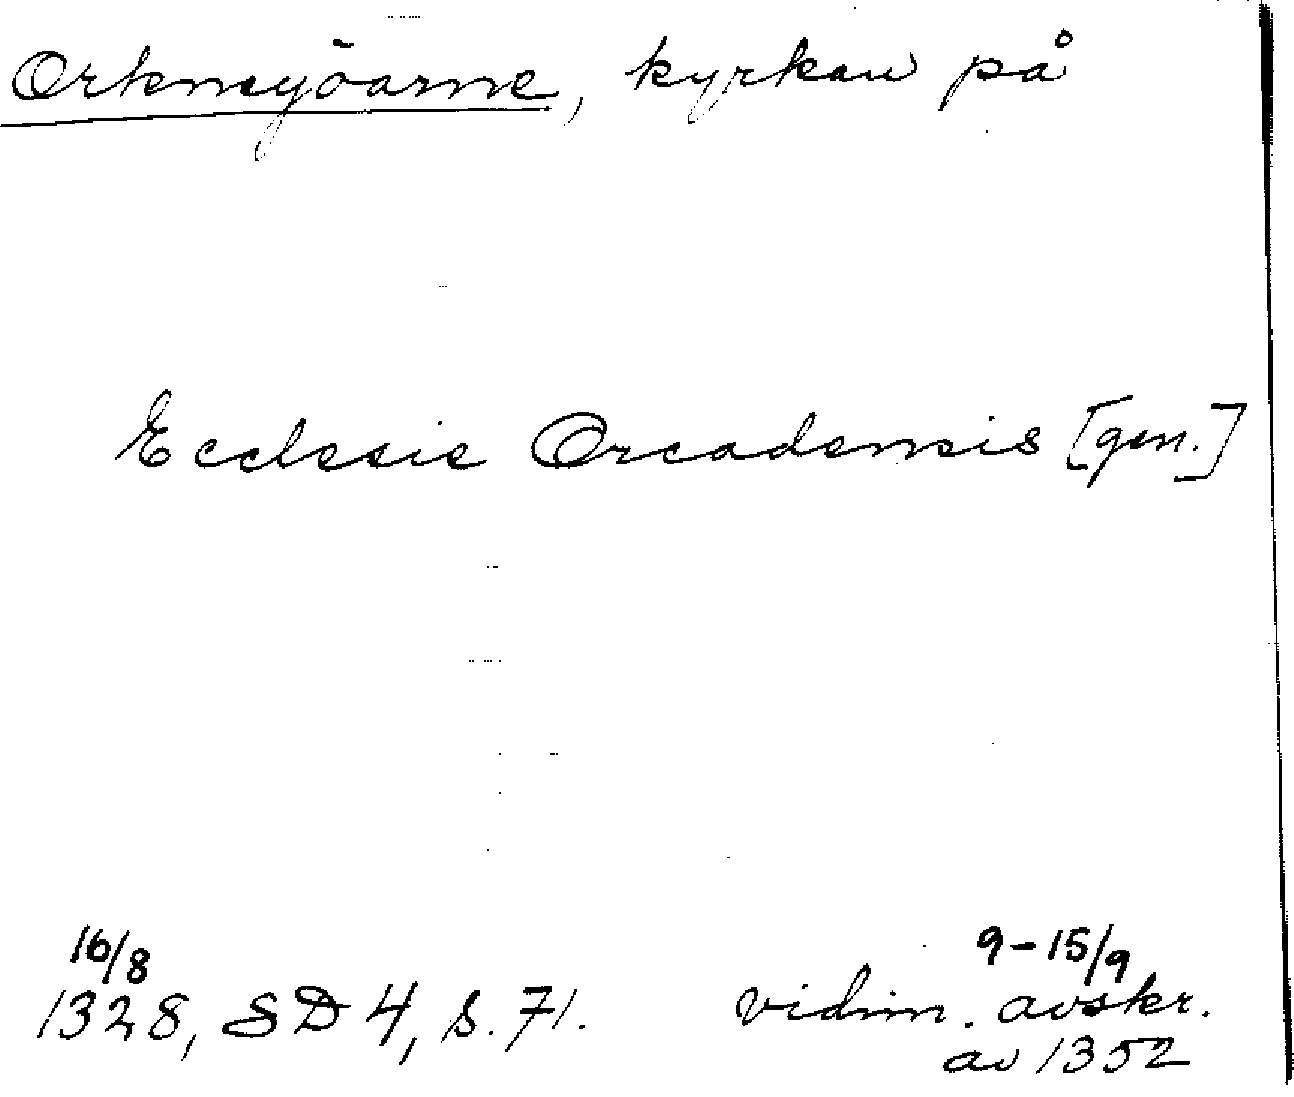 Orkneyöarne, kyrkan på
Ecclesie Orcadensis [gen.]
16/8
1328, SD 4, s. 71.
9-15/9
vidim. avskr.
av 1352